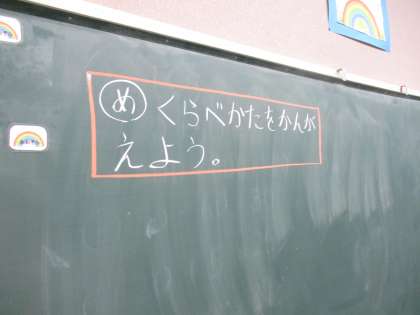 め くらべかたをかんが
えよう。